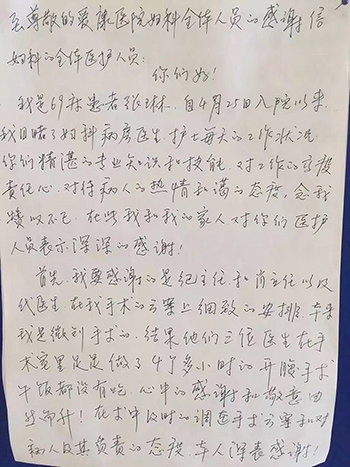 至尊敬的爱康医院妇科全体人员的感谢信
妇科的全体医护人员:
你们好!
我是69床患者张琳,自4月25日入院以来,
我目睹了妇科病房医生护士每天的工作状况
你们精湛的专业知识和技能,对工作的高度
责任心,对待病人的热情和蔼的态度,令我
赞叹不已,在此我和我的家人对你们医护
人员表示深深的感谢!
首先,我要感谢的是纪主任和肖主任以及
代医生,在我手术的方案上细致的安排,本来
我是微创手术的,结果他们三位医生在手
术室里足足做了4个多小时的开腹手术
午饭都没有吃,心中的感谢和敬意由
然而升!在术中及时的调整手术方案和对
病人极其负责的态度,本人深表感谢!